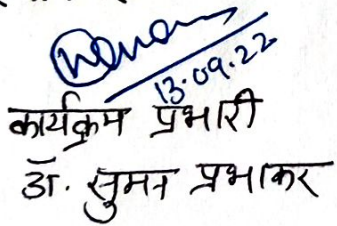 13.09.22
कार्यक्रम प्रभारी
डॉ. सुमन प्रभाकर